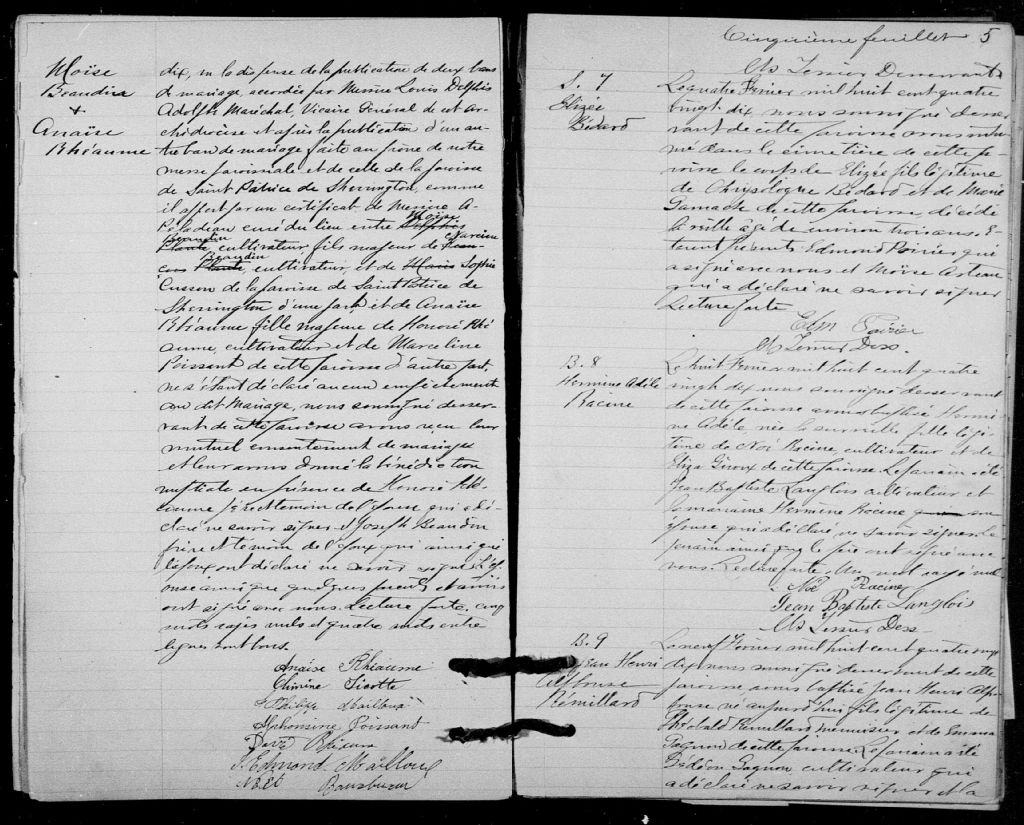 Moïse
Beaudin
+
Anaïse
Rhéaume
dix, vu la dispense de la publication de deux bans
de mariage, accordée par Messire Louis Delphis
Adolph Maréchal, Vicaire Général de cet Ar-
chidiocèse et après la publication d'un au-
tre ban de mariage faite au prône de notre
messe paroissiale et de celle de la paroisse
de Saint Patrice de Sherrington, comme
il appert par un certificat de Messire A-
Péladeau curé du lieu entre Moïse
Beaudin cultivateur fils majeur de Narcisse
Beaudin, cultivateur, et de Marie Sophie
Cusson de la paroisse de Saint Patrice de
Sherrington, d'une part, et de Anaïse
Rhéaume fille majeure de Honoré Rhé
aume, cultivateur et de Marceline
Poissant de cette paroisse d'autre part,
ne s'étant déclaré aucun empêchement
au dit Mariage, nous soussigné desser-
vant de cette paroisse avons reçu leur
mutuel consentement de mariage
et leur avons donné la bénédiction
nuptiale en présence de Honoré Rhé-
aume père et témoin de l'épouse qui a dé-
claré ne savoir signer et Joseph Beaudin
frère et témoin de l'époux qui ainsi que
l'époux ont déclaré ne savoir signer. L'é-
pouse ainsi que quelques parents et amis
ont signé avec nous. Lecture faite. cinq
mots rayés nuls et quatre mots entre
lignes sont bons.
Anaïse Rhéaume
Sicotte
Philippe Mailloux
Alphonsine Poissant
David Rhéaume
J. Edmond Mailloux
Cinquième feuillet 5
Tessier Desservant
S. 7
Elizée
Bédard
Le quatre Février mil huit cent quatre
vingt dix nous soussigné desser
vant de cette paroisse avons inhu
mé dans le cimetière de cette pa
roisse le corps de Elizée fils légitime
de Chrysologue Bédard et de Marie
Gamache de cette paroisse, décédé
la veille âgé de environ trois ans. E-
taient présents Edmond Poirier qui
a signé avec nous et Moïse Arteau
qui a déclaré ne savoir signer
Lecture faite
Edm Poirier
Tessier Dess.
B. 8
Hermine Adèle
Racine
Le huit Février mil huit cent quatre
vingt dix nous soussigné desservant
de cette paroisse avons baptisé Hermi
ne Adèle née la surveille fille légi-
time de Noé Racine, cultivateur et de
Eliza Giroux de cette paroisse. Le parrain a été
Jean Baptiste Langlois cultivateur et
la marraine Hermine Racine son
épouse qui a déclaré ne savoir signer. Le
parrain ainsi que le père ont signé avec
nous. Lecture faite. Un mot rayé nul.
Noé Racine
Jean Baptiste Langlois
Tessier Dess.
B. 9
Jean Henri
Alphonse
Rémillard
Le neuf Février mil huit cent quatre vingt
dix nous soussigné desservant de cette
paroisse avons baptisé Jean Henri Alph
onse né aujourd'hui fils légitime de
Théobald Rémillard menuisier et de Emma
Gagnon de cette paroisse. Le parrain a été
Gédéon Gagnon cultivateur qui
a déclaré ne savoir signer et la